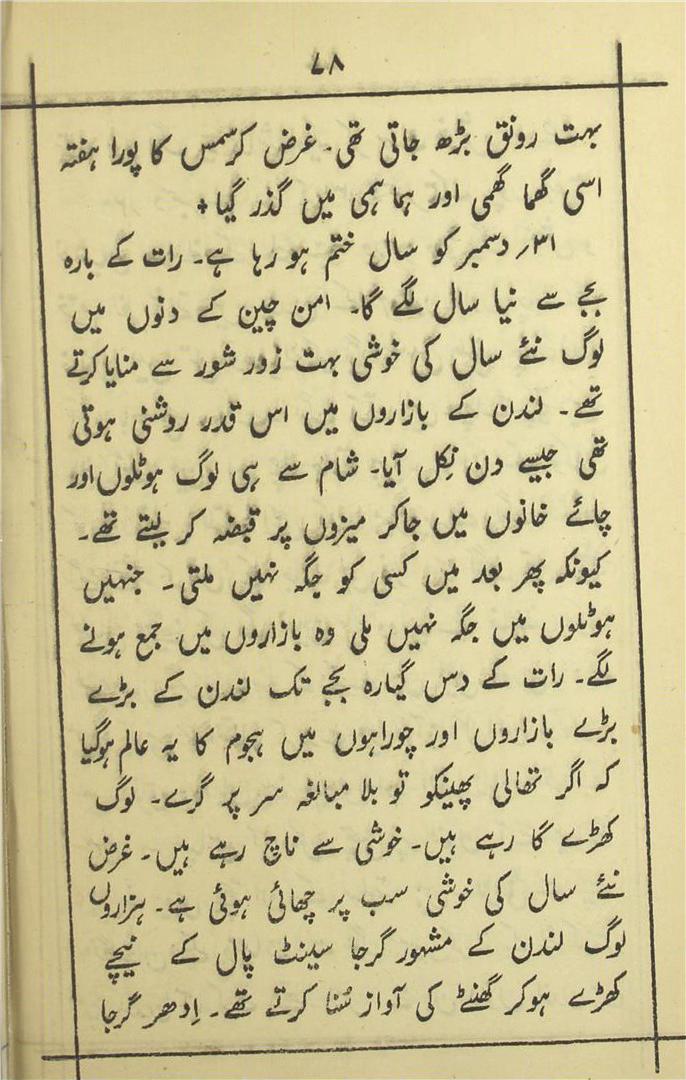 ۷۸
بہت رونق بڑھ جاتی تھی۔ غرض کرسمس کا پورا ہفتہ
اسی گھما گھمی اور ہماہمی میں گذر گیا +
۳۱؍ دسمبر کو سال ختم ہو رہا ہے۔ رات کے بارہ
بجے سے نیا سال لگے گا۔ امن چین کے دنوں میں
لوگ نئے سال کی خوشی بہت زور شور سے منایا کرتے
تھے۔ لندن کے بازاروں میں اس قدر روشنی ہوتی
تھی جیسے دن نِکل آیا۔ شام سے ہی لوگ ہوٹلوں اور
چائے خانوں میں جاکر میزوں پر قبضہ کر لیتے تھے۔
کیونکہ پھر بعد میں کسی کو جگہ نہیں ملتی۔ جنہیں
ہوٹلوں میں جگہ نہیں ملی وہ بازاروں میں جمع ہونے
لگے۔ رات کے دس گیارہ بجے تک لندن کے بڑے
بڑے بازاروں اور چوراہوں میں ہجوم کا یہ عالم ہوگیا
کہ اگر تھالی پھینکو تو بلا مبالغہ سر پر گرے۔ لوگ
کھڑے گا رہے ہیں۔ خوشی سے ناچ رہے ہیں۔ غرض
نئے سال کی خوشی سب پر چھائی ہوئی ہے۔ ہزاروں
لوگ لندن کے مشہور گرجا سینٹ پال کے نیچے
کھڑے ہوکر گھنٹے کی آواز سُنا کرتے تھے۔ اِدھر گرجا